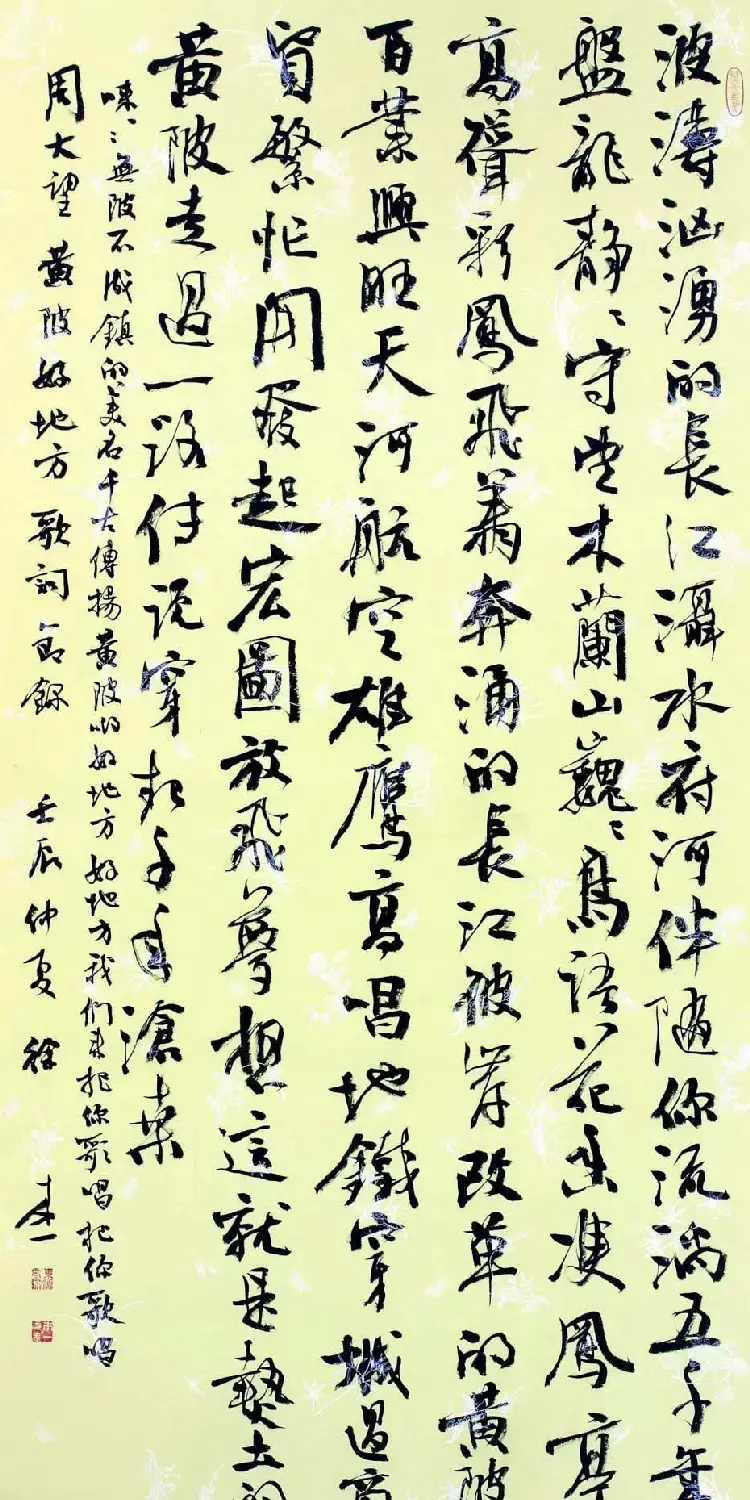 波濤洶湧的長江灄水府河伴隨你流淌五千年
盤龍靜〻守望木蘭山巍〻鳥語花香凍鳳臺
高聳彩鳳飛翥奔涌的長江彼岸改革的黃陂
百業興旺天河航空雄鷹高唱地鐵穿城過商
貿繁忙開發起宏圖放飛夢想這就是熱土的
黃陂走過一路傳說穿越千年滄桑
噗〻無陂不成鎮的美名千古傳揚黃陂喲好地方好地方我們來把你歌唱把你歌唱
周大望 黃陂好地方 歌詞節錄 壬辰仲夏 徐